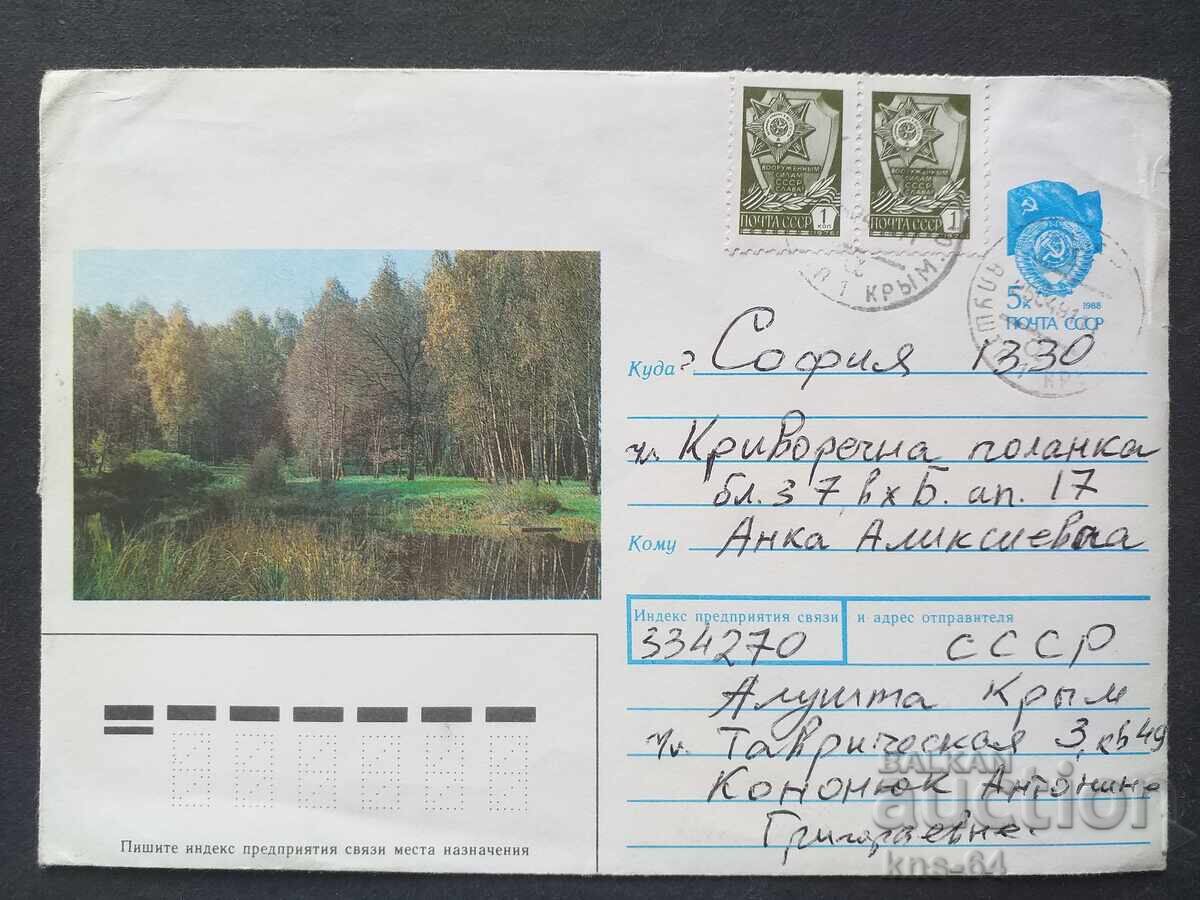 ВООРУЖЕННЫМ
СИЛАМ
СССР
СЛАВА!
1
КОП
ПОЧТА СССР
1976
ВООРУЖЕННЫМ
СИЛАМ
СССР
СЛАВА!
1
ПОЧТА СССР
1976
П 1 КРЫМ
5к
1988
ПОЧТА СССР
Куда? София 1330
ул. Криворечна поланка
бл. 37 вх Б. ап. 17
Кому Анка
Индекс предприятия связи
и адрес отправителя
334270 СССР
Алушта Крым
ул. Таврическая 3, кв 49
Кононюк Антонина
BALKAN
auction
kns-64
Пишите индекс предприятия связи места назначения